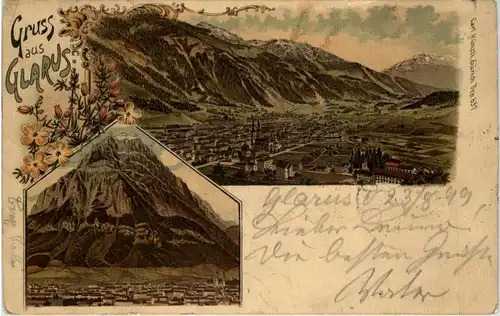 Gruss
aus
GLARUS.
Carl Künzli, Zürich. Dep. 857.
Glarus d 23/8 99
Lieber
Die besten Grüsse
Walter